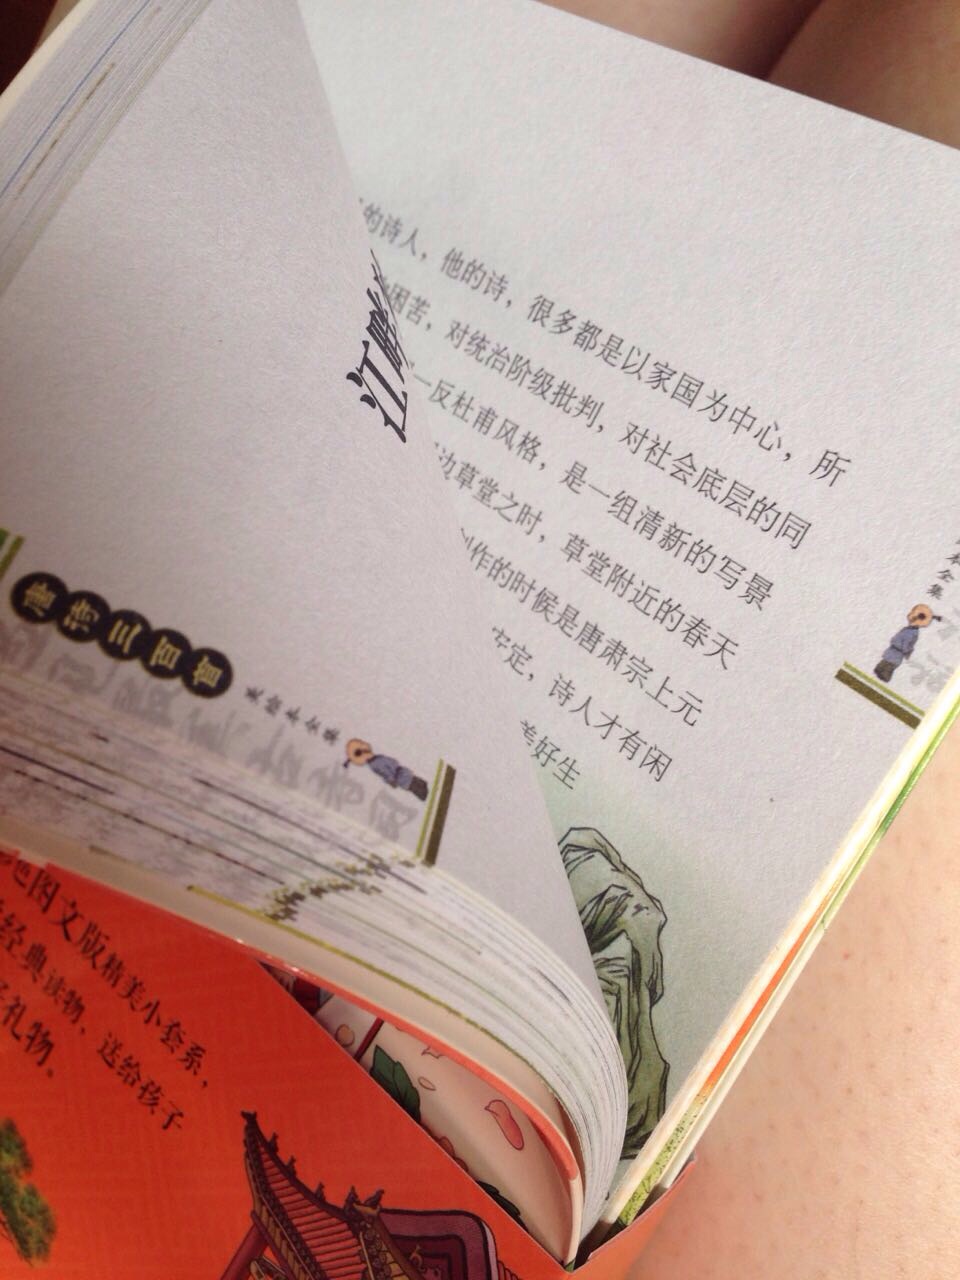 的诗人，他的诗，很多都是以家国为中心，所
困苦，对统治阶级批判，对社会底层的同
一反杜甫风格，是一组清新的写景
边草堂之时，草堂附近的春天
作的时候是唐肃宗上元
定，诗人才有闲
美好生
本全集
江畔
唐诗三百首
美绘本全集
色图文版精美小套系，
经典读物、送给孩子
礼物。